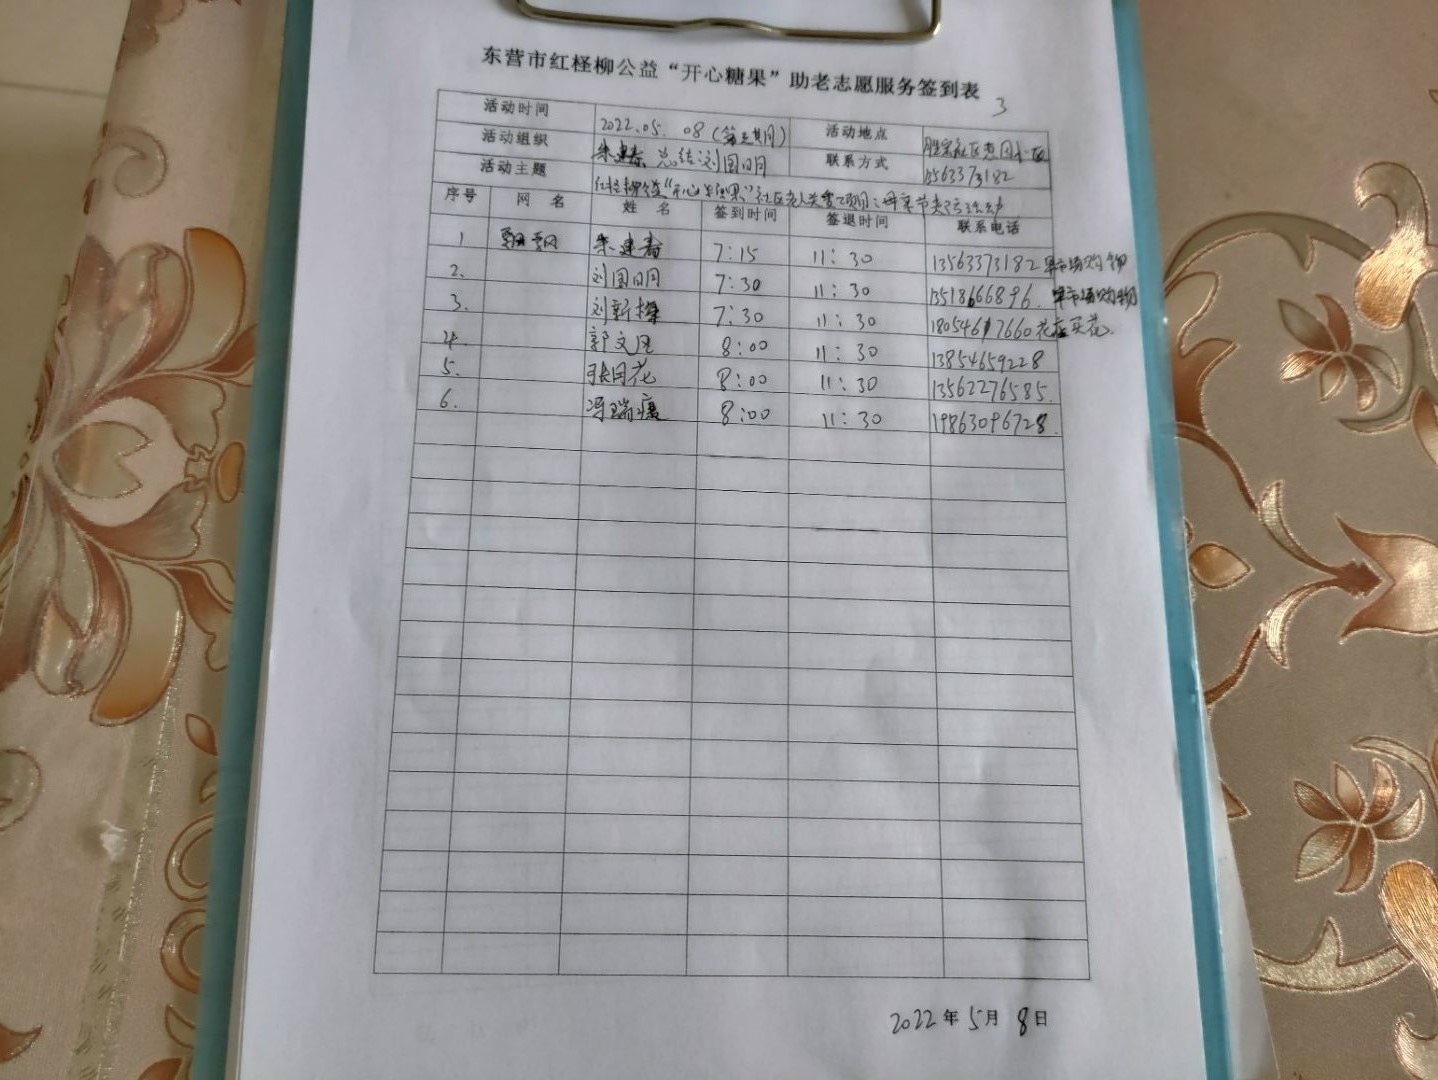 东营市红柽柳公益“开心糖果”助老志愿服务签到表
3
活动时间 2022.05.08(第三期) 活动地点
活动组织 总结:刘国明 联系方式 13563373182
活动主题 红柽柳公益“开心糖果”社区老人关爱项目:母亲节
序号 网名 姓名 签到时间 签退时间 联系电话
1 飘飘 朱建春 7:15 11:30 13563373182 早市场购物
2. 刘国明 7:30 11:30 13518666896. 早市场购物
3. 刘新梅 7:30 11:30 18054617660 花店买花.
4. 郭文 8:00 11:30 13854659228
5. 张同花 8:00 11:30 13562276585.
6. 冯瑞 8:00 11:30 19863096728.
2022年5月8日